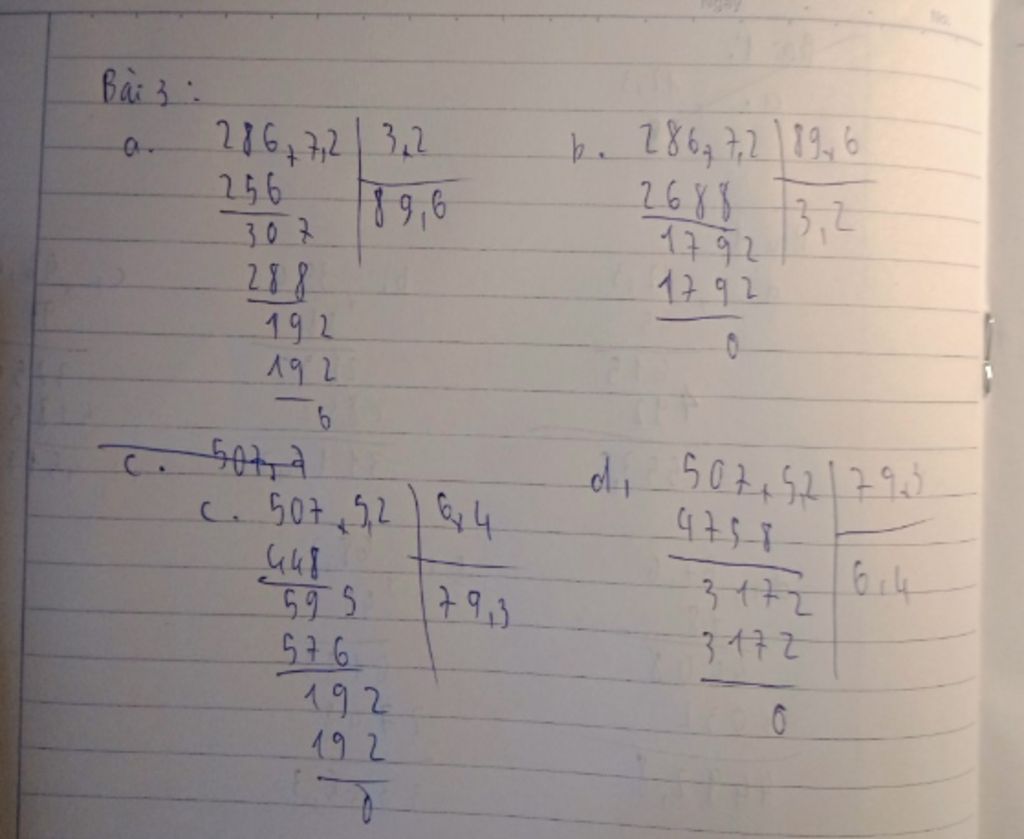 Bài 3 :
a. 286,7,2 3,2
256 89,6
307
288
192
192
0
b. 286,7,2 89,6
2688 3,2
1792
1792
0
c. 507,7
c. 507,5,2 6,4
448
595 79,3
576
192
192
0
d, 507,5,2 79,3
4758
3172 6,4
3172
0